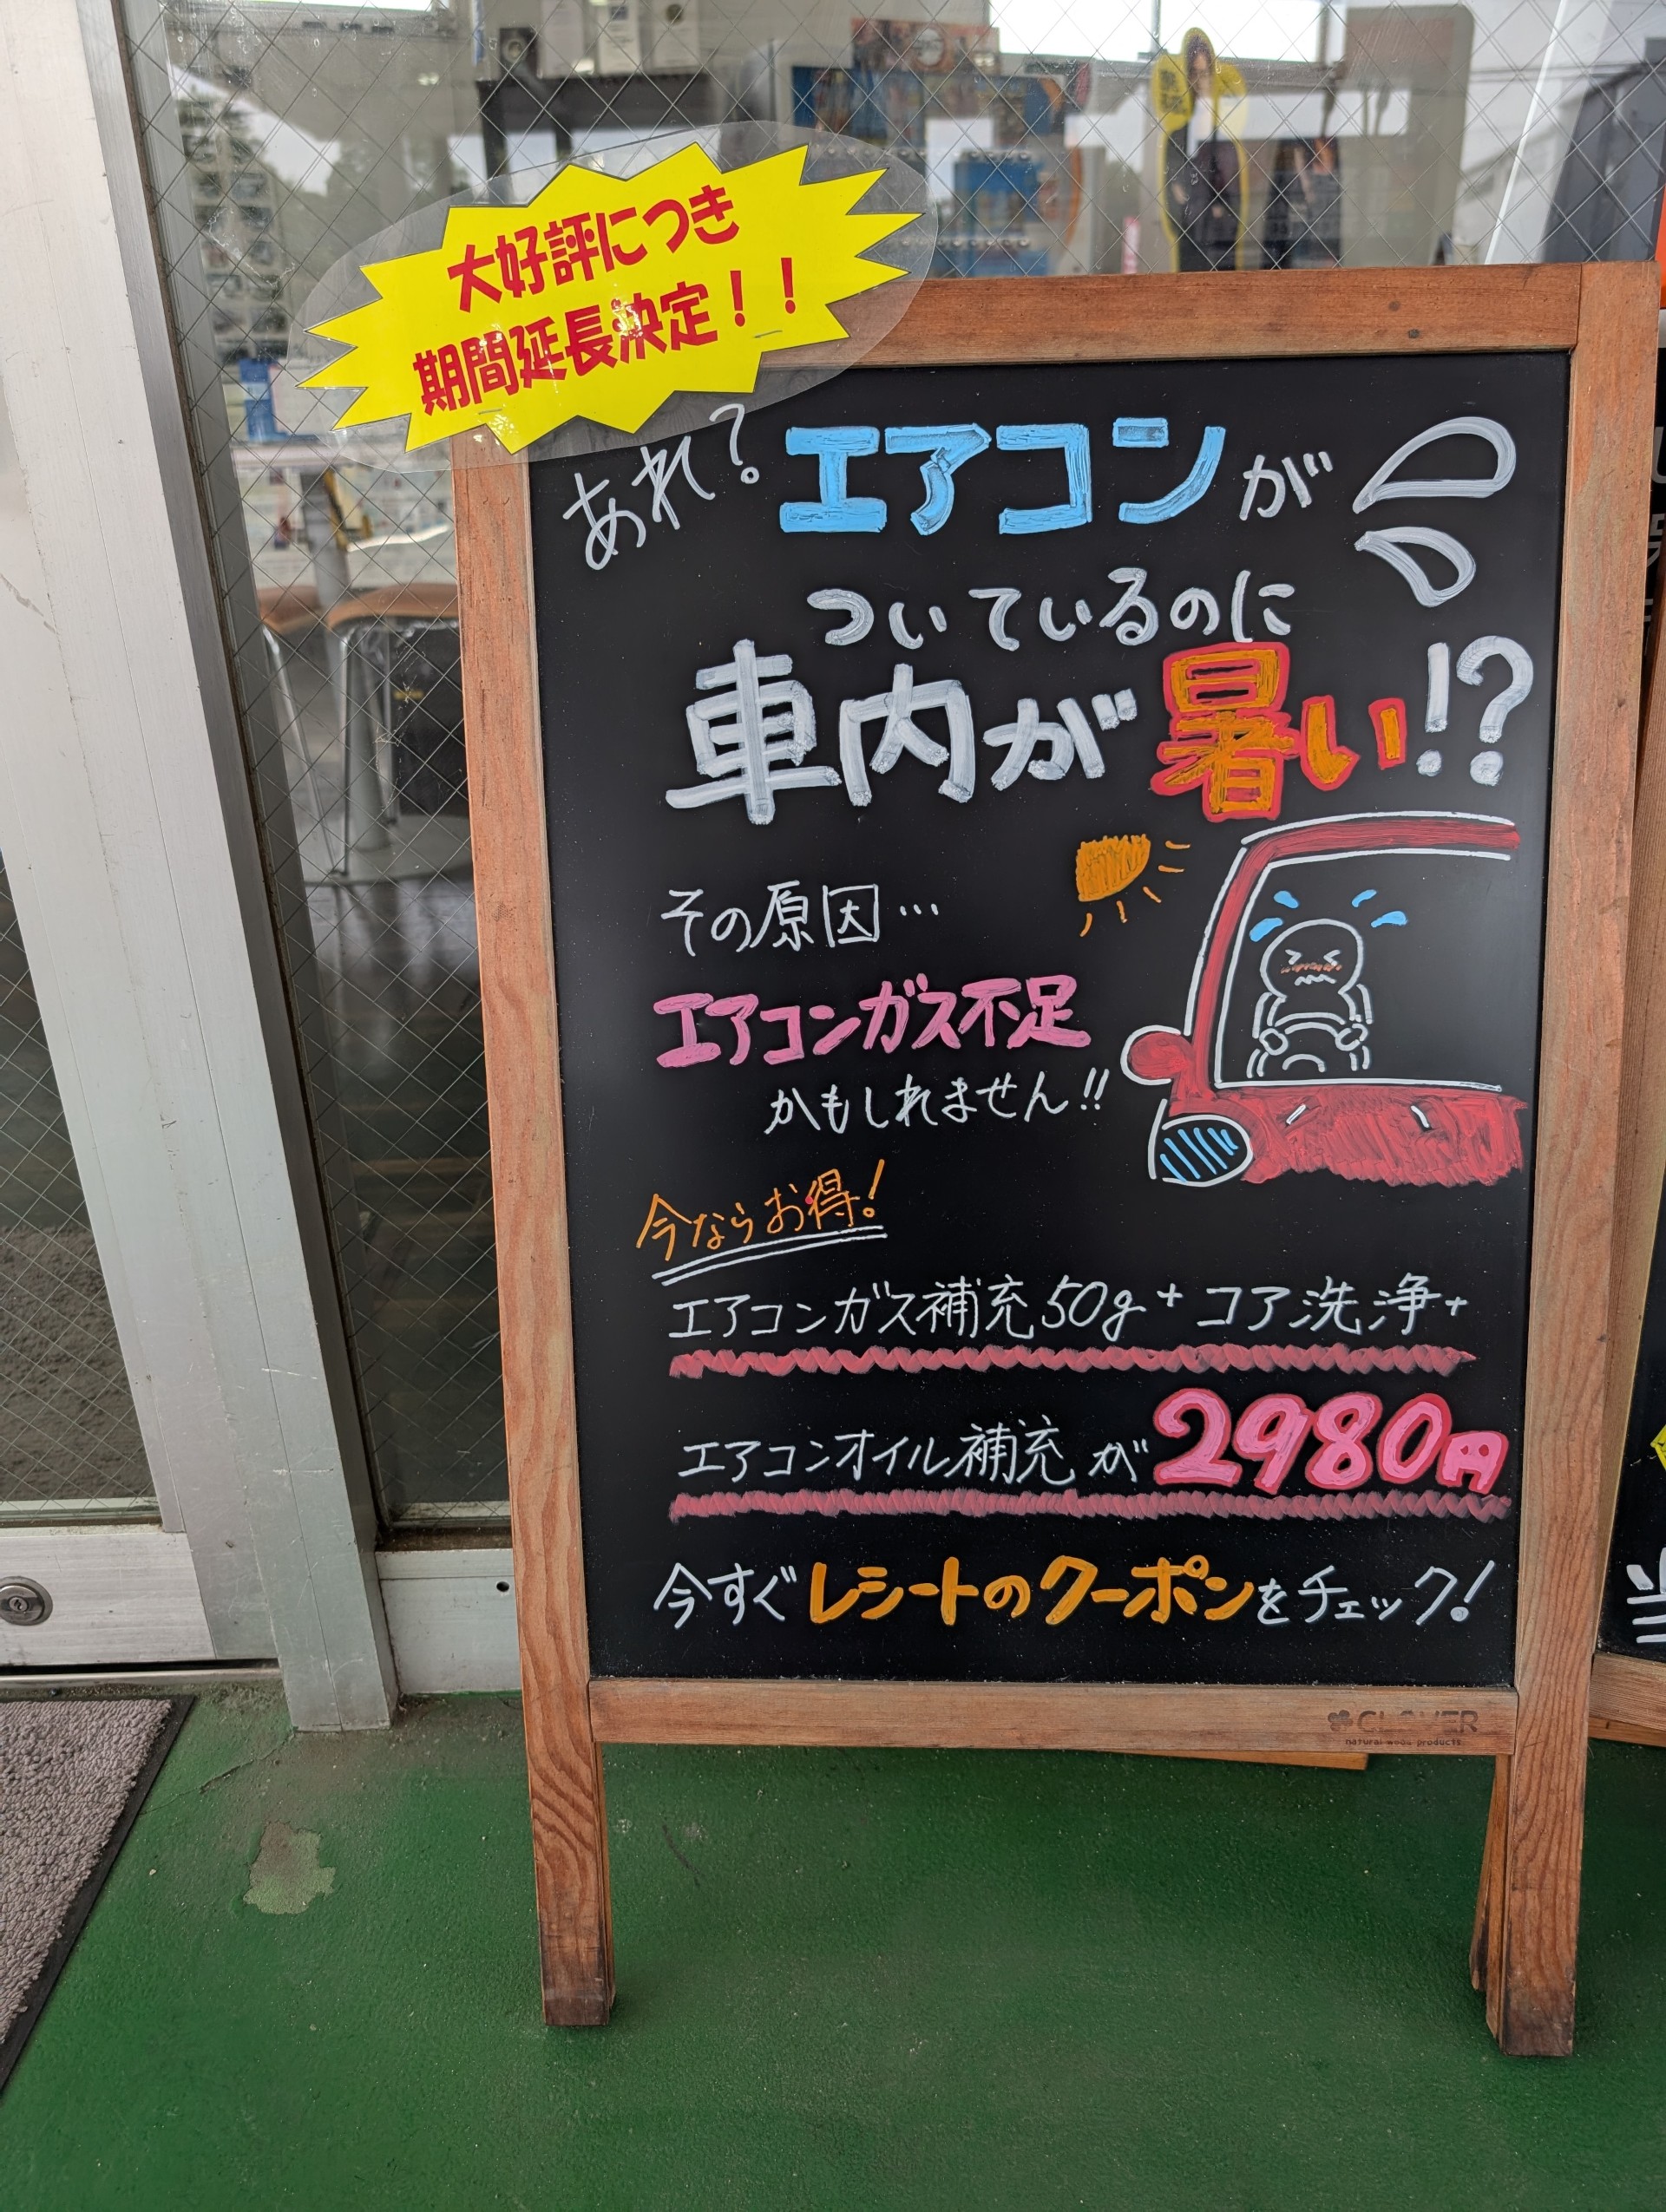 大好評につき
期間延長決定！！
あれ？エアコンが
ついているのに
車内が暑い!?
その原因…
エアコンガス不足
かもしれません!!
今ならお得!
エアコンガス補充50g+コア洗浄+
エアコンオイル補充が2980円
今すぐレシートのクーポンをチェック!
CLOVER
natural wood products